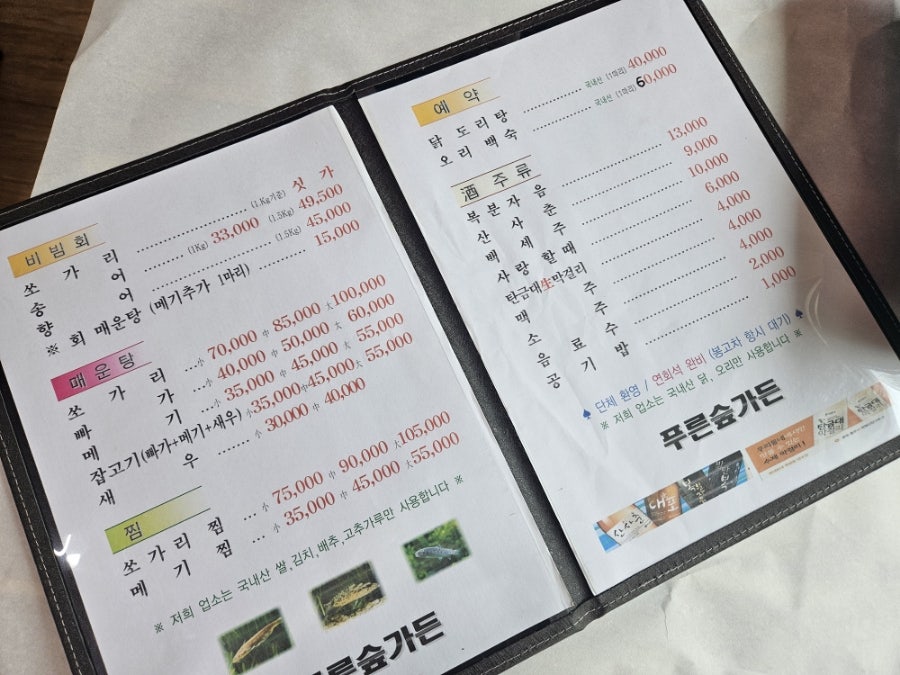 비빔회
쏘가리 ........................ (1Kg기준) 싯가
송어 ............ (1Kg) 33,000 (1.5Kg) 49,500
향어 ........................ (1.5Kg) 45,000
※ 회 매운탕 (메기추가 1마리) ......... 15,000
매운탕
쏘가리 ...小 70,000 中 85,000 大100,000
빠가 ...小 40,000 中 50,000 大 60,000
메기 ...小 35,000 中 45,000 大 55,000
잡고기(빠가+메기+새우)小35,000中45,000大 55,000
새우 ...小 30,000 中 40,000
찜
쏘가리찜 ...小 75,000 中 90,000 大105,000
메기찜 ...小 35,000 中 45,000 大 55,000
※ 저희 업소는 국내산 쌀,김치,배추,고추가루만 사용합니다 ※
푸른숲가든
예약
닭도리탕 ............ 국내산 (1마리) 40,000
오리백숙 ............ 국내산 (1마리) 60,000
酒 주류
복분자음 ............ 13,000
산사춘 ............ 9,000
백세주 ............ 10,000
사랑할때 ............ 6,000
탄금대生막걸리 ............ 4,000
맥주 ............ 4,000
소주 ............ 4,000
음료수 ............ 2,000
공기밥 ............ 1,000
♠ 단체 환영 / 연회석 완비 (봉고차 항시 대기) ♠
※ 저희 업소는 국내산 닭, 오리만 사용합니다 ※
푸른숲가든
산사춘
대포
탄금대